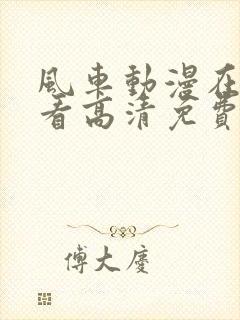 風車動漫在
看高清免費
傅大慶